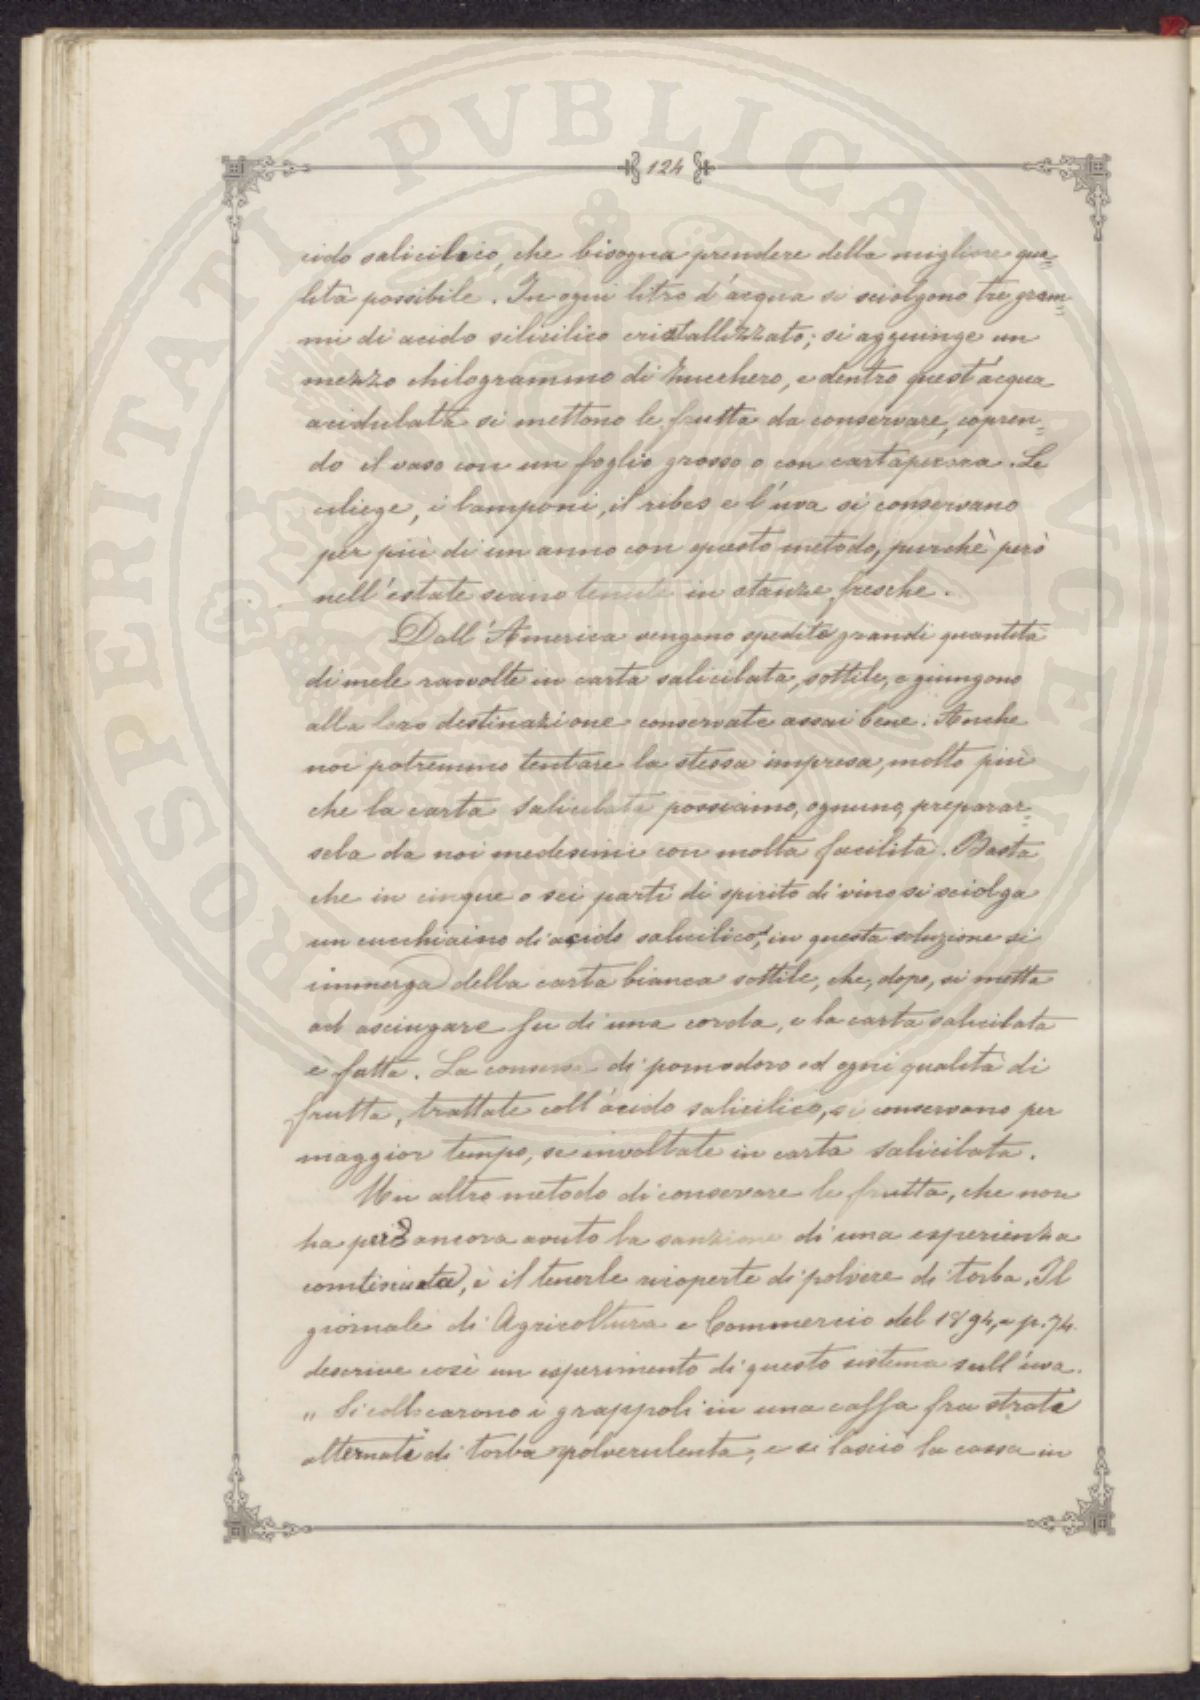 124
PVBLICAE
PROSPERITATI
AVGENDAE
cido salicilico, che bisogna prendere della migliore qua=
lità possibile. In ogni litro d'acqua si sciolgono tre gram=
mi di acido silicilico cristallizzato; si aggiunge un
mezzo chilogrammo di zucchero, e dentro quest'acqua
acidulata si mettono le frutta da conservare, copren=
do il vaso con un foglio grosso o con cartapecora. Le
ciliege, i lamponi, il ribes e l'uva si conservano
per più di un anno con questo metodo, purchè però
nell'estate siano tenute in stanze fresche.
Dall'America vengono spedite grandi quantità
di mele ravvolte in carta salicilata, sottile, e giungono
alla loro destinazione conservate assai bene. Anche
noi potremmo tentare la stessa impresa, molto più
che la carta salicilata possiamo, ognuno, preparar=
sela da noi medesimi con molta facilità. Basta
che in cinque o sei parti di spirito di vino si sciolga
un cucchiaino di acido salicilico, in questa soluzione si
immerga della carta bianca sottile, che, dopo, si metta
ad asciugare su di una corda, e la carta salicilata
è fatta. La conserva di pomodoro ed ogni qualità di
frutta, trattate coll'acido salicilico, si conservano per
maggior tempo, se involtate in carta salicilata.
Un altro metodo di conservare le frutta, che non
ha però ancora avuto la sanzione di una esperienza
continuata, è il tenerle ricoperte di polvere di torba. Il
giornale di Agricoltura e Commercio del 1894, a p. 74.
descrive così un esperimento di questo sistema sull'uva.
„ Si collocarono i grappoli in una cassa fra strati
alternati di torba polverulenta, e si lasciò la cassa in